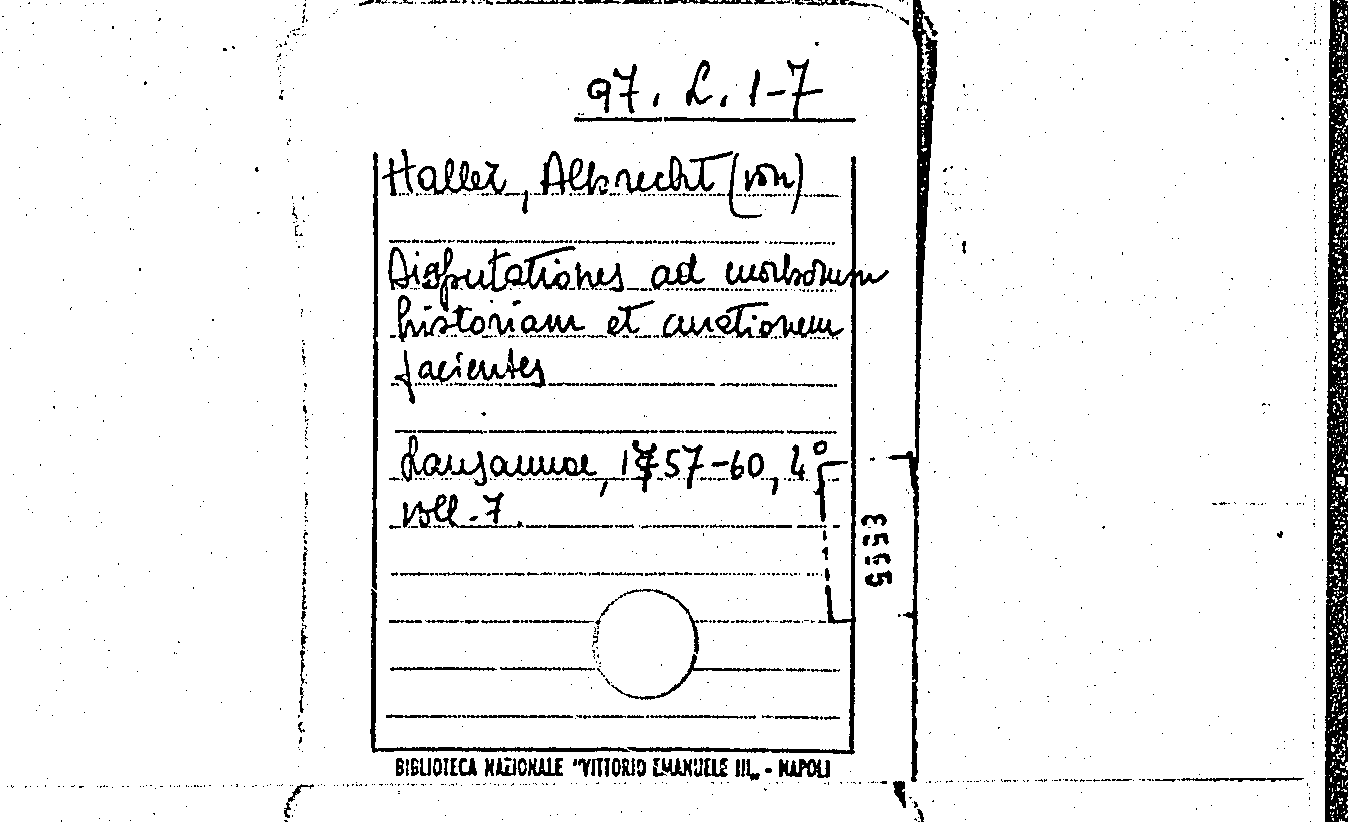 97. L. 1-7
Haller, Albrecht (von)
Disputationes ad morborum
historiam et curationem
facientes
Lausannae, 1757-60, 4°
voll. 7.
3555
BIBLIOTECA NAZIONALE "VITTORIO EMANUELE III„ - NAPOLI